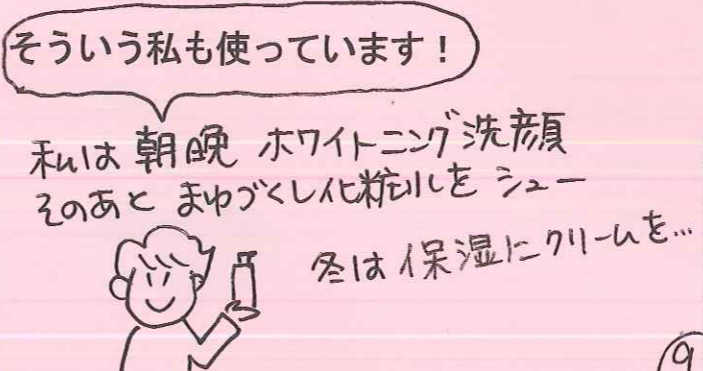 そういう私も使っています！
私は 朝晩 ホワイトニング洗顔
そのあと まゆづくし化粧水を シュー
冬は 保湿にクリームを…
9